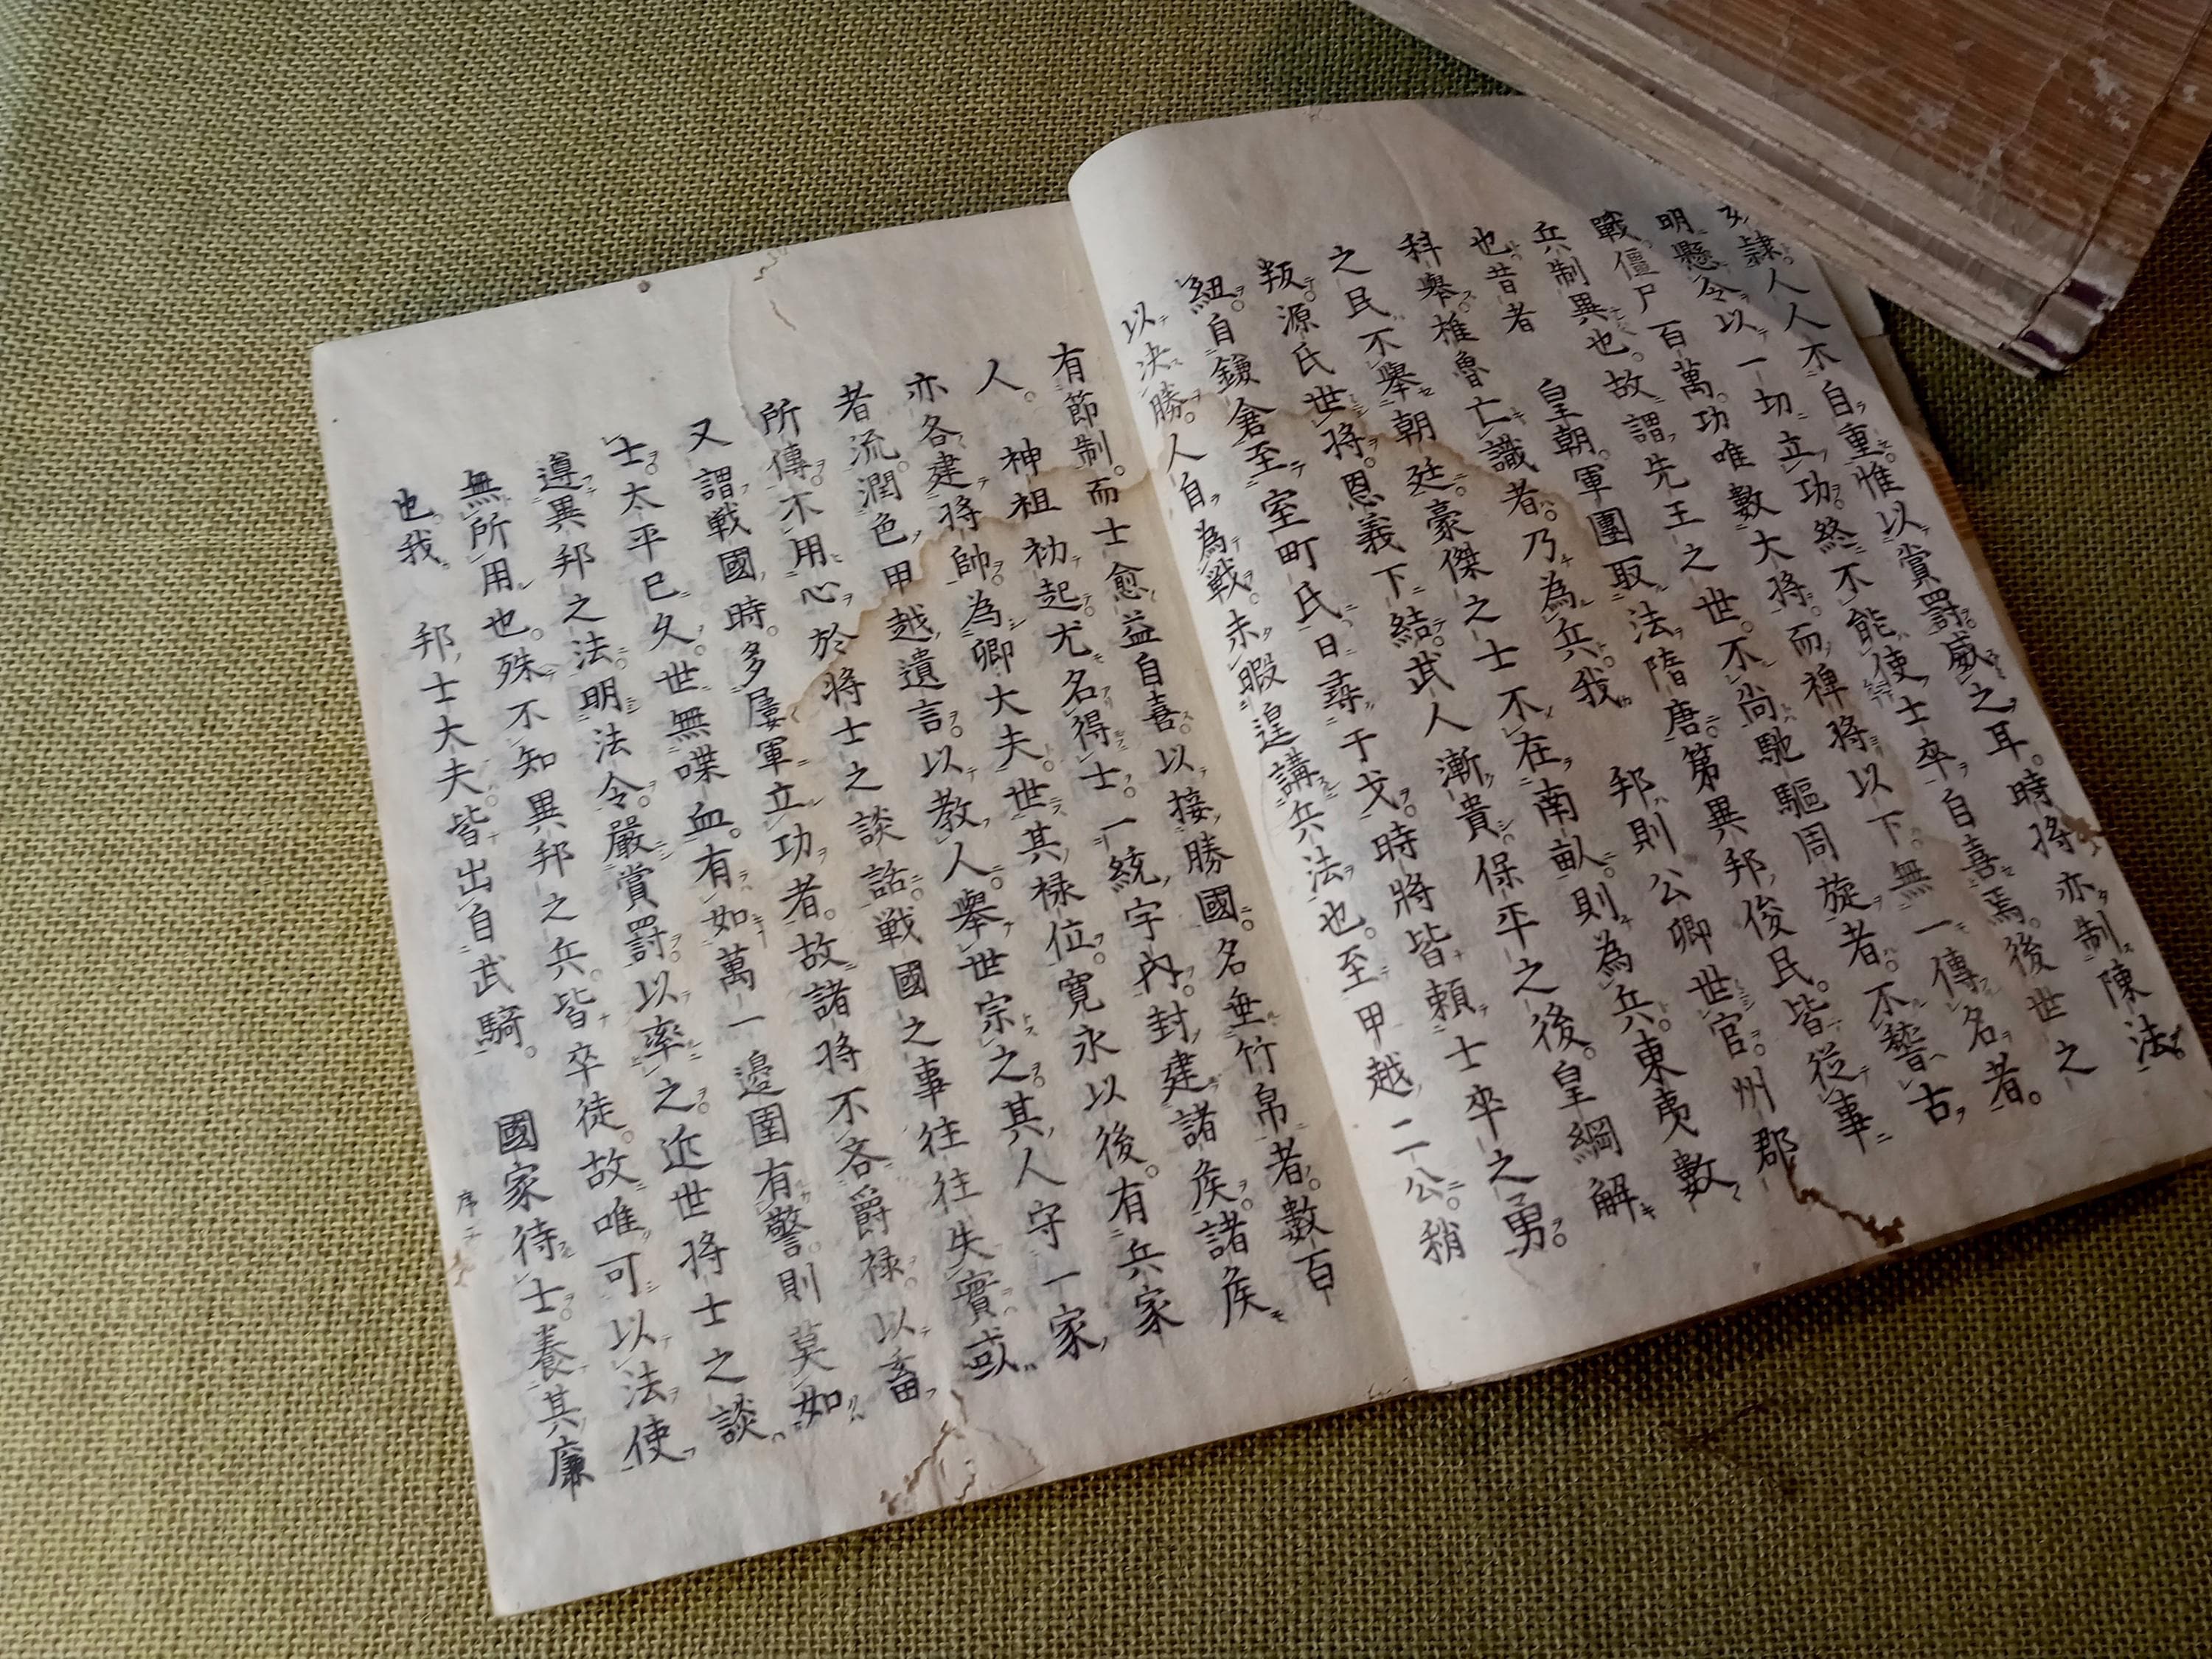 奴隷。人人不自重。惟以賞罰威之耳。時將亦制陳法。
明懸令以一切立功。終不能使士卒自喜焉。後世之
戰僵尸百萬。功唯數大將。而裨將以下。無一傳名者。
兵制異也。故謂先王之世。不尚馳驅周旋者。不稽古
也昔者　皇朝。軍團取法隋唐。第異邦俊民。皆從事
科舉。椎魯亡識者。乃為兵。我　邦則公卿世官。州郡
之民不舉朝廷。豪傑之士不在南畝。則為兵。東夷數
叛。源氏世將。恩義下結。武人漸貴。保平之後。皇綱解
紐。自鎌倉至室町氏日尋干戈。時將皆頼士卒之勇。
以决勝。人自為戰。未暇遑講兵法也。至甲越二公。稍
有節制。而士愈益自喜。以接勝國。名垂竹帛者。數百
人。　神祖初起。尤名得士。一統宇内。封建諸侯。諸侯
亦各建將帥。為卿大夫。世其禄位。寛永以後。有兵家
者流。潤色甲越遺言。以教人。舉世宗之。其人守一家
所傳。不用心於將士之談話。戰國之事往往失實。或
又謂戰國時。多屢軍立功者。故諸將不吝爵禄。以畜
士。太平已久。世無喋血。有如萬一邊圉有警。則莫如
遵異邦之法。明法令。嚴賞罰。以率之。近世將士之談。
無所用也。殊不知異邦之兵。皆卒徒。故唯可以法使
也。我　邦士大夫。皆出自武騎。　國家待士。養其廉
序